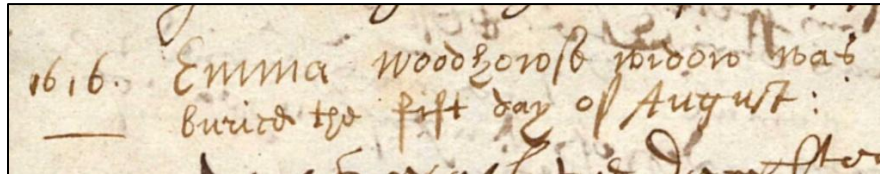 1616. Emma Woodhowse widow was
buried the fift day of August :